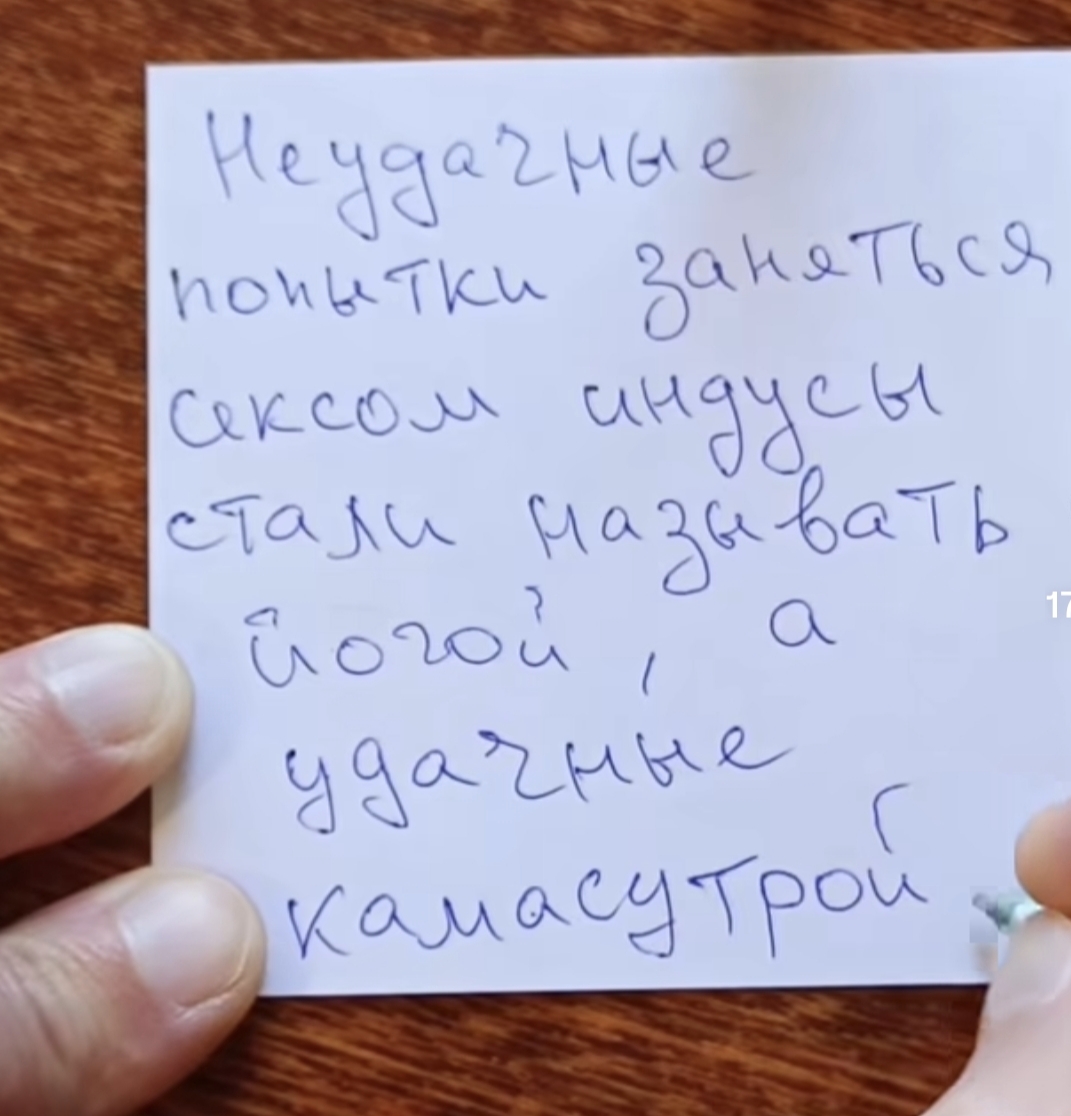 Неудачные
попытки заняться
сексом индусы
стали называть
йогой, а
удачные
камасутрой
17